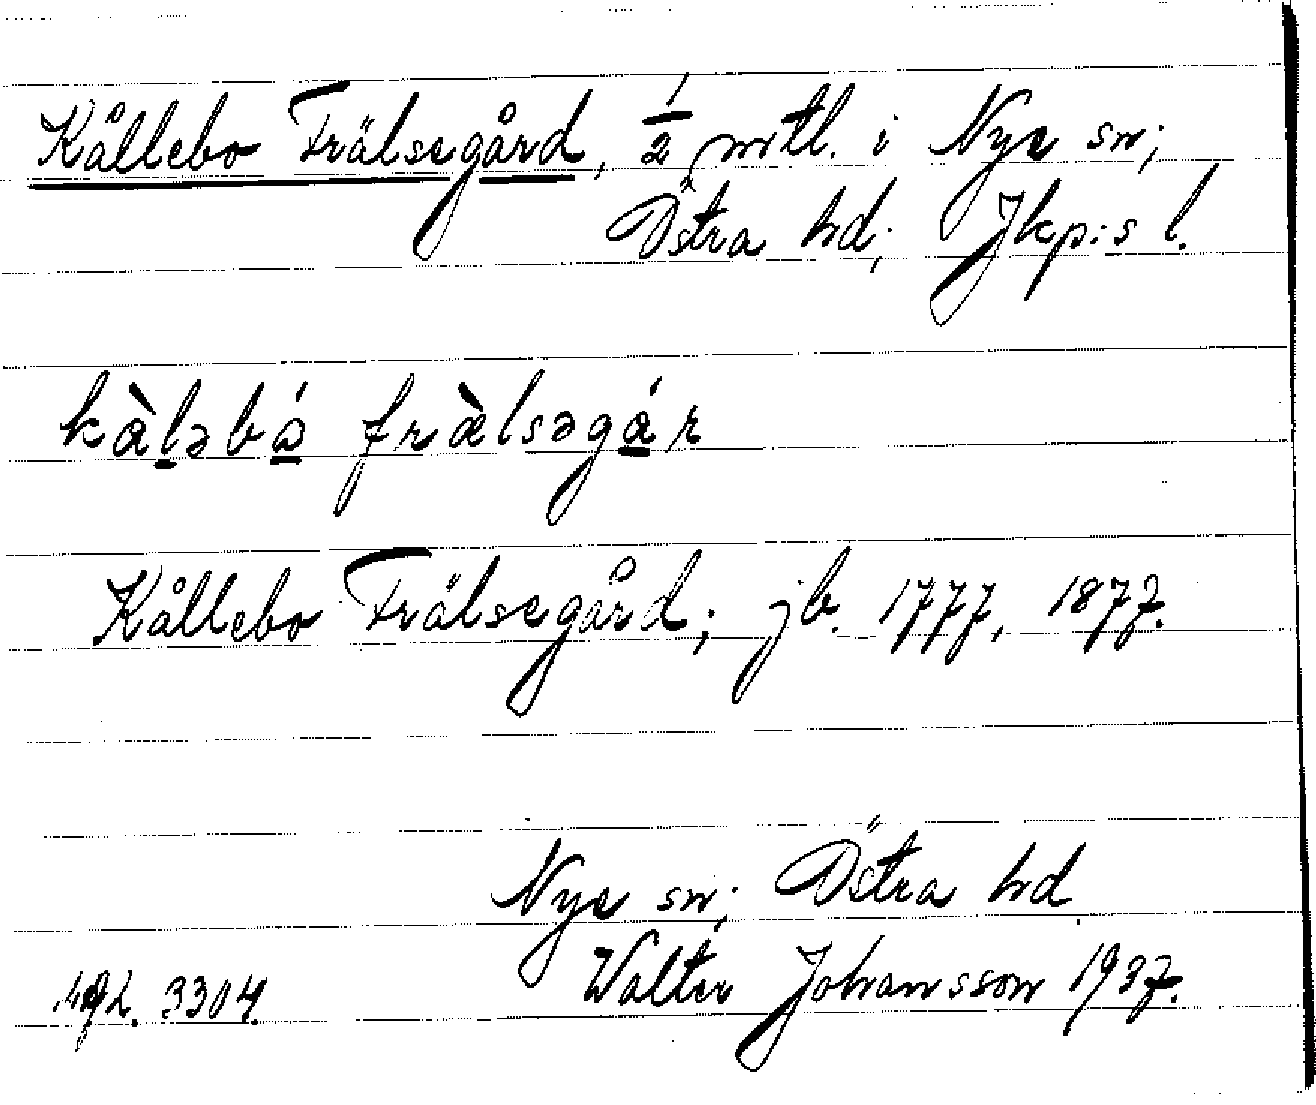 Kållebo Frälsegård, ½ mtl. i Nye sn;
Östra hd; Jkp:s l.
kàləbó frælsəgár
Kållebo Frälsegård; jb. 1777, 1877.
Nye sn; Östra hd
Walter Johansson 1937.
3304